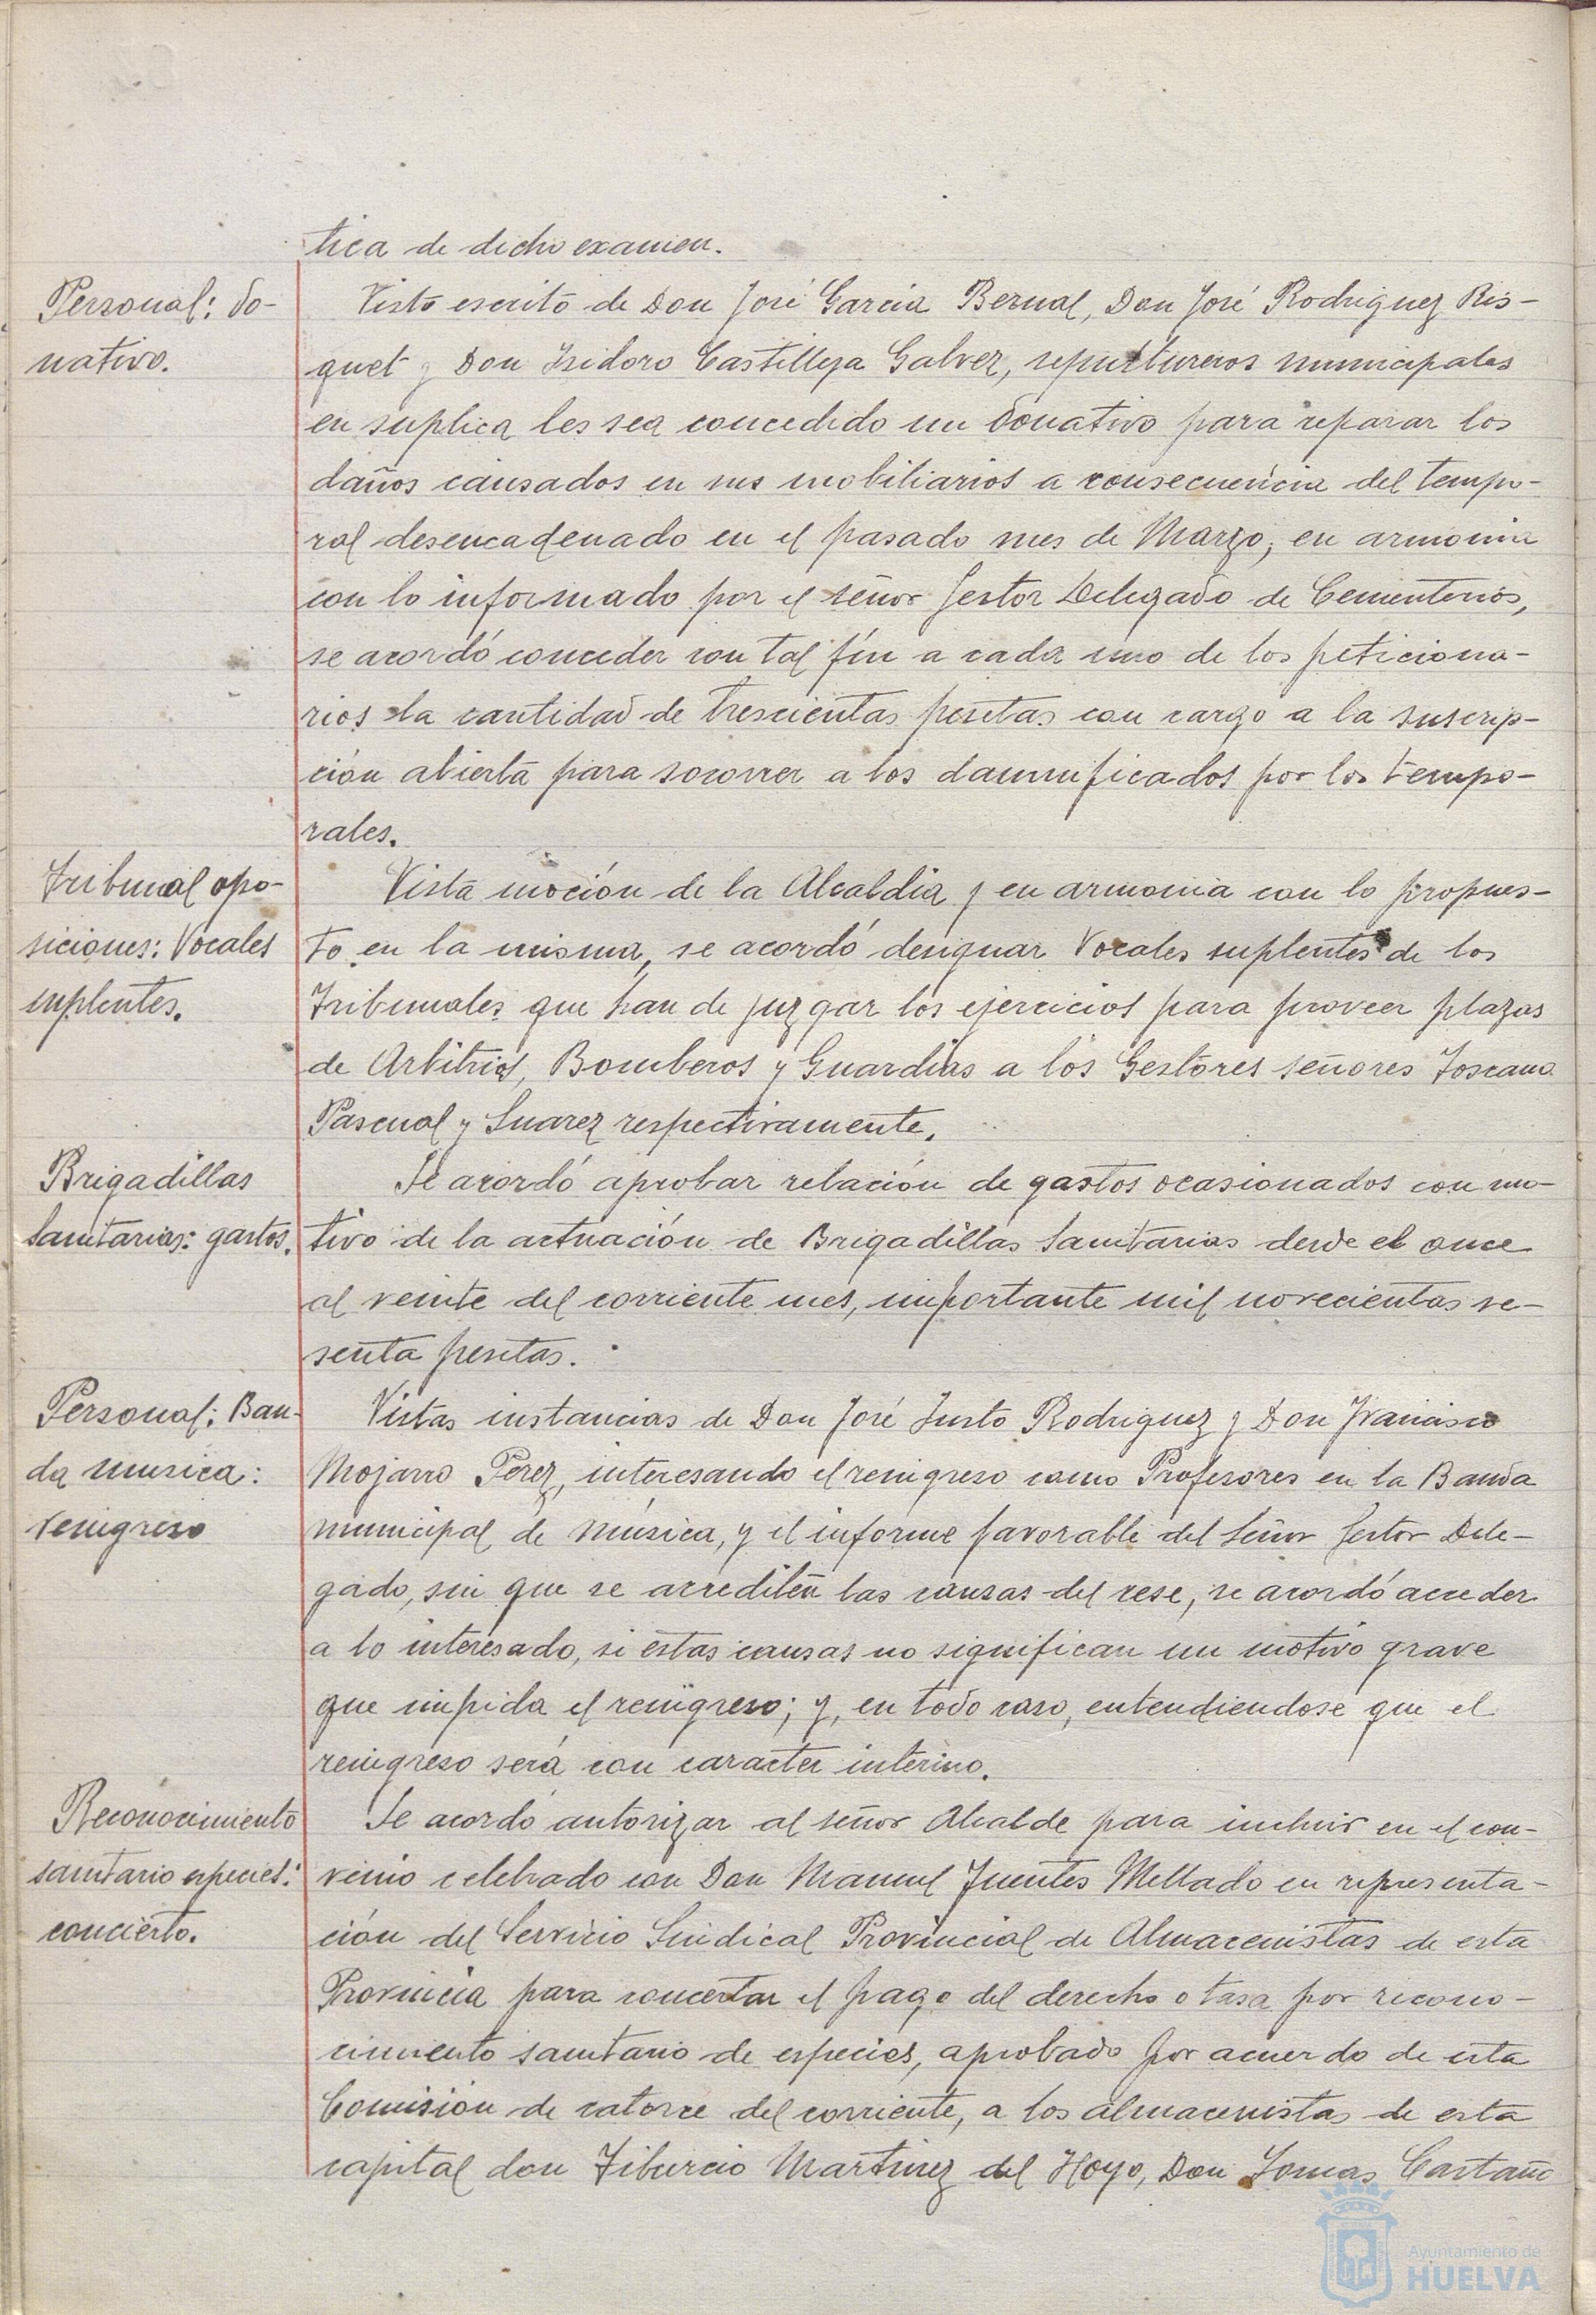 tica de dicho examen.
Personal: do-
nativo.
Visto escrito de Don José García Bernal, Don José Rodriguez Ris-
quet y Don Isidoro Castilleja Galvez, sepultureros municipales
en suplica les sea concedido un donativo para reparar los
daños causados en sus mobiliarios a consecuencia del tempo-
ral desencadenado en el pasado mes de Marzo; en armonia
con lo informado por el señor Gestor Delegado de Cementerios,
se acordó conceder con tal fín a cada uno de los peticiona-
rios la cantidad de trescientas pesetas con cargo a la suscrip-
ción abierta para socorrer a los damnificados por los tempo-
rales.
Tribunal opo-
siciones: Vocales
suplentes.
Vista moción de la Alcaldia y en armonia con lo propues-
to en la misma, se acordó designar Vocales suplentes de los
Tribunales que han de juzgar los ejercicios para proveer plazas
de Arbitrios, Bomberos y Guardias a los Gestores señores Toscano
Pascual y Suarez respectivamente.
Brigadillas
Sanitarias: gastos.
Se acordó aprobar relación de gastos ocasionados con mo-
tivo de la actuación de Brigadillas Sanitarias desde el once
al veinte del corriente mes, importante mil novecientas se-
senta pesetas.
Personal: Ban-
da musica:
reingreso
Vistas instancias de Don José Justo Rodriguez y Don Francisco
Mojarro Pérez, interesando el reingreso como Profesores en la Banda
municipal de música, y el informe favorable del Señor Gestor Dele-
gado, sin que se acrediten las causas del cese, se acordó acceder
a lo interesado, si estas causas no significan un motivo grave
que impida el reingreso; y, en todo caso, entendiendose que el
reingreso será con caracter interino.
Reconocimiento
sanitario especies:
concierto.
Se acordó autorizar al señor Alcalde para incluir en el con-
venio celebrado con Don Manuel Fuentes Mellado en representa-
ción del Servicio Sindical Provincial de Almacenistas de esta
Provincia para concertar el pago del derecho o tasa por recono-
cimiento sanitario de especies, aprobado por acuerdo de esta
Comisión de catorce del corriente, a los almacenistas de esta
capital don Tiburcio Martinez del Hoyo, Don Tomas Castaño
Ayuntamiento de
HUELVA